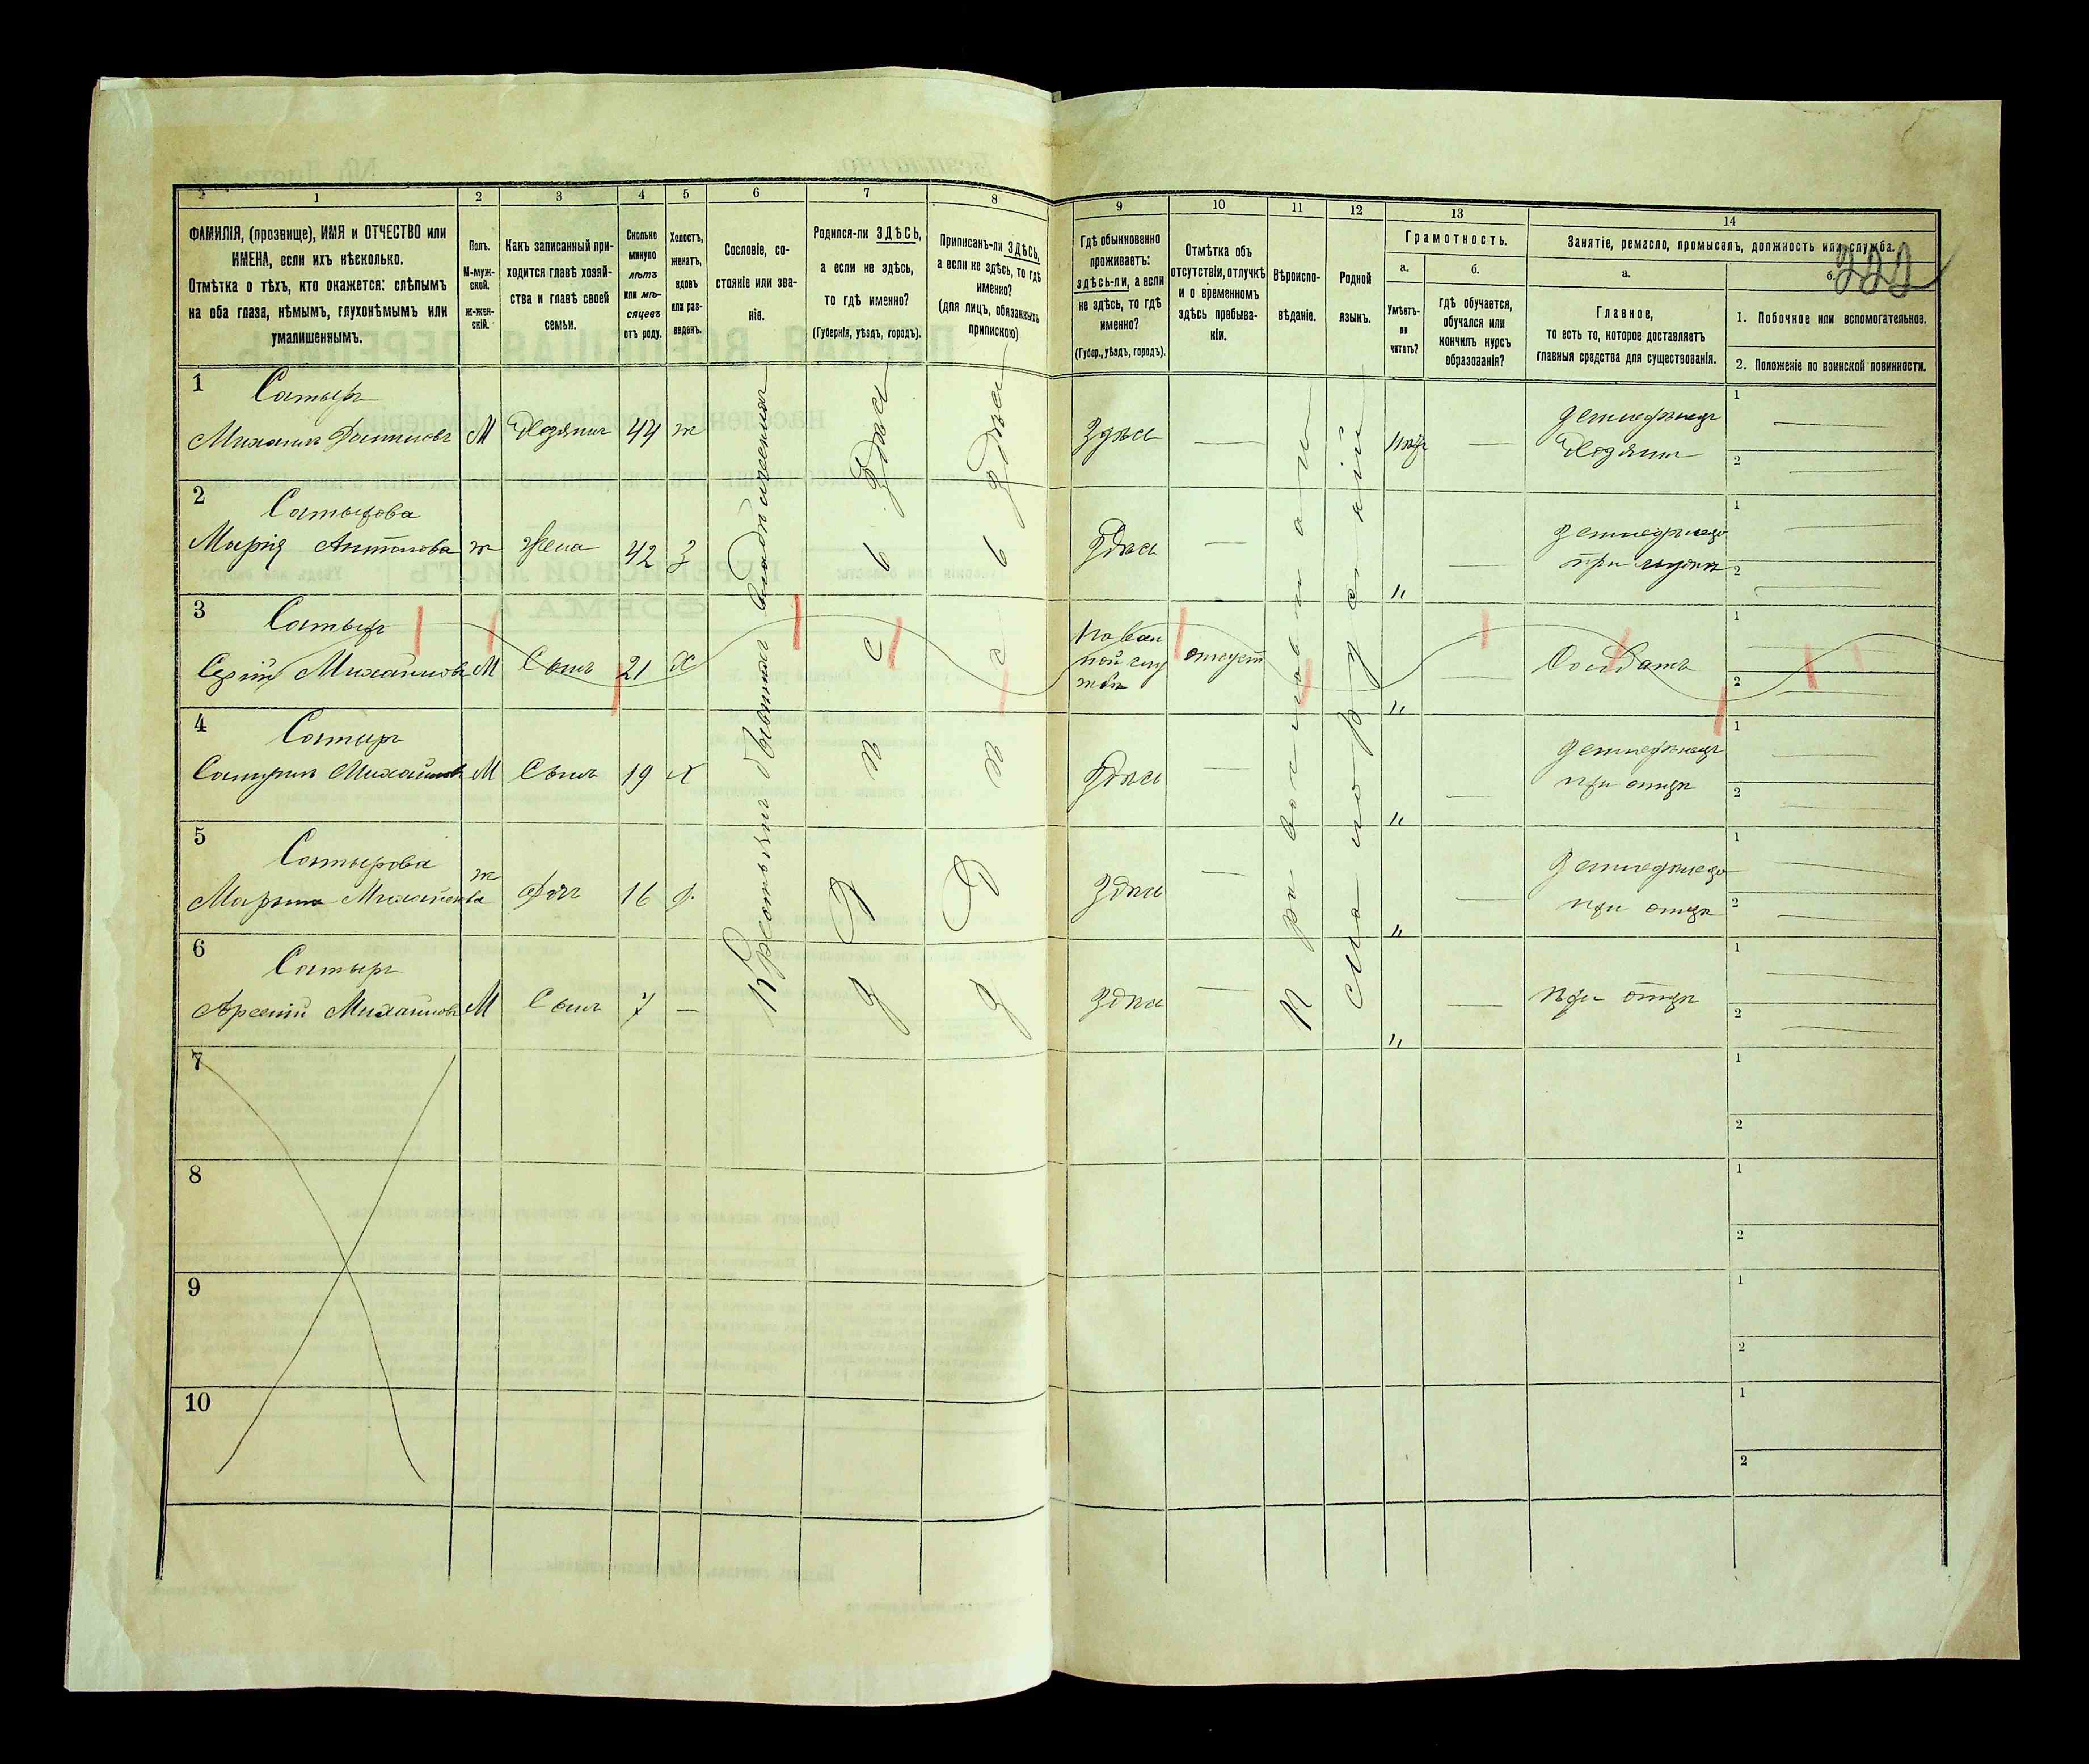 1 2 3 4 5 6 7 8 9 10 11 12 13 14
ФАМИЛІЯ, (прозвище), ИМЯ и ОТЧЕСТВО или
ИМЕНА, если ихъ нѣсколько.
Отмѣтка о тѣхъ, кто окажется: слѣпымъ
на оба глаза, нѣмымъ, глухонѣмымъ или
умалишеннымъ.
Полъ.
М-муж-
ской.
ж-жен-
скій.
Какъ записанный при-
ходится главѣ хозяй-
ства и главѣ своей
семьи.
Сколько
минуло
лѣтъ
или мѣ-
сяцевъ
отъ роду.
Холостъ,
женатъ,
вдовъ
или раз-
веденъ.
Сословіе, со-
стояніе или зва-
ніе.
Родился-ли ЗДѢСЬ,
а если не здѣсь,
то гдѣ именно?
(Губернія, уѣздъ, городъ).
Приписанъ-ли ЗДѢСЬ,
а если не здѣсь, то гдѣ
именно?
(для лицъ, обязанныхъ
припискою)
Гдѣ обыкновенно
проживаетъ:
здѣсь-ли, а если
не здѣсь, то гдѣ
именно?
(Губер., уѣздъ, городъ).
Отмѣтка объ
отсутствіи, отлучкѣ
и о временномъ
здѣсь пребыва-
ніи.
Вѣроиспо-
вѣданіе.
Родной
языкъ.
Грамотность.
а.
Умѣетъ-
ли
читать?
б.
гдѣ обучается,
обучался или
кончилъ курсъ
образованія?
Занятіе, ремесло, промыселъ, должность или служба.
222
а.
Главное,
то есть то, которое доставляетъ
главныя средства для существованія.
б.
1. Побочное или вспомогательное.
2. Положеніе по воинской повинности.
Крестьянинъ бывшій
Здѣсь
Здѣсь
Православный
1 Сатыръ
Михаилъ М Хозяинъ 44 ж Здѣсь — — Земледѣлецъ
Хозяинъ
1 —
2 —
2 Сатырова
Марія Антонова ж Жена 42 з Здѣсь — " — Земледѣлецъ
при мужѣ
1 —
2 —
3 Сатыръ
Сергій Михайловъ М Сынъ 21 х
На воен
ной слу
жбѣ
отсуст " — Солдатъ
1
2 —
4 Сатыръ
Михайловъ М Сынъ 19 х Здѣсь — " — Земледѣлецъ
при отцѣ
1 —
2 —
5 Сатырова
Михайлова ж Доч 16 д. Здѣсь — " — Земледѣлецъ
при отцѣ
1 —
2 —
6 Сатыръ
Арсеній Михайловъ М Сынъ 7 — Здѣсь — " — при отцѣ
1 —
2 —
7 1
2
8 1
2
9 1
2
10 1
2